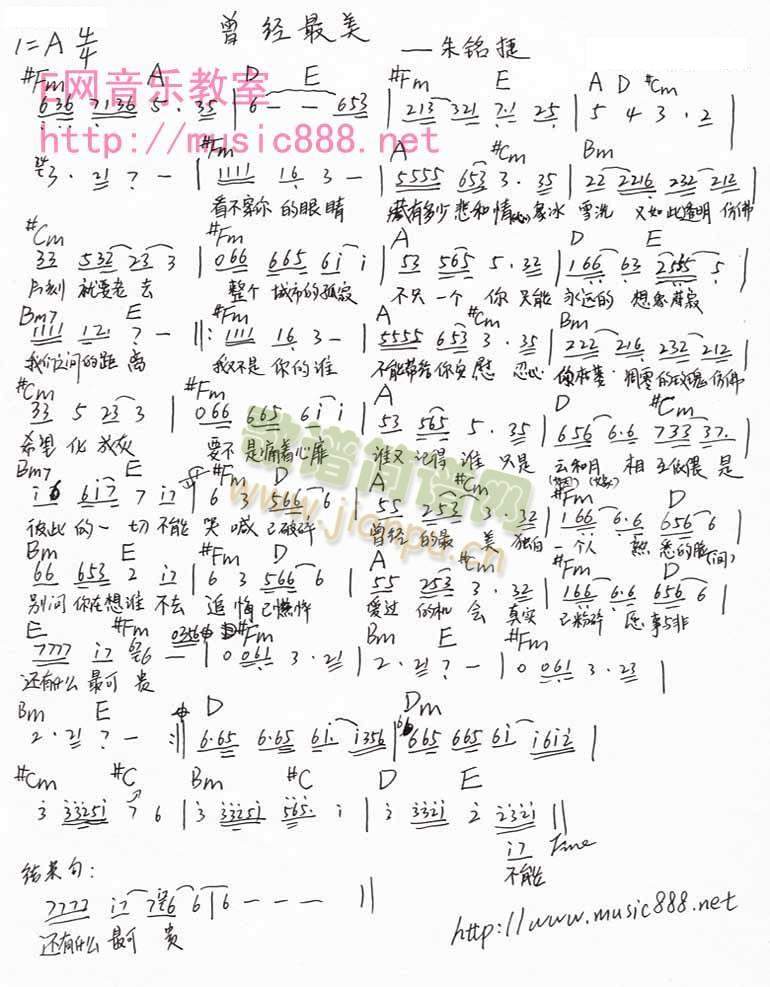 曾经最美
1=A 4/4
——朱铭捷
#Fm A D E #Fm E A D #Cm
E网音乐教室
636 7136 5· 35 | 6 - - 653 | 213 321 7·1 25 | 5 4 3 · 2 |
http://music888.net
#Fm A #Cm Bm
3 · 21 7 - | 1111 16 3 - | 5555 653 3 · 35 | 22 2216 232 212 |
看不穿你的眼睛 藏有多少悲和情 冰雪洗 又如此透明 仿佛
#Cm #Fm A D E
33 532 23 3 | 066 665 6i i | 53 565 5 · 32 | 166 63 2555 5 |
片刻就要老去 整个城市的孤寂 不只一个你 只能永远的想象
Bm7 E #Fm A #Cm Bm
1111 121 7 - ‖: 1111 16 3 - | 5555 653 3 · 35 | 222 216 232 212 |
我们之间的距离 我又不是你的谁 不能带给你安慰 忍心 凋零的玫瑰 仿佛
#Cm #Fm A D #Cm
33 5 23 3 | 066 665 6i i | 53 565 5 · 35 | 656 6·6 733 37· |
希望化成灰 要不是痛着心扉 谁又记得谁 只是云和月 相互依偎 是
Bm7 E #Fm D A #Cm #Fm D
i6 6i7 7 i7 | 6 3 566 6 | 55 253 3 · 32 | 166 6·6 656 6 |
彼此的一切 不能 哭喊已破碎 曾经的最美 独自一个人 熟悉的脸
Bm E #Fm D A #Cm #Fm D
66 653 2 i7 | 6 3 566 6 | 55 253 3 · 32 | 166 6·6 656 6 |
别问你在想谁 不去追悔已憔悴 爱过的机会 真实已粉碎 愿事与非
E #Fm #Fm Bm E #Fm
7777 i7 6 - | 0 061 3 · 21 | 2 · 21 7 - | 0 061 3 · 23 |
还有什么最可贵
Bm E D Dm
2 · 21 7 - :‖ 6·65 6·65 6i· i356 | 665 665 6i i6i2 |
#Cm #C Bm #C D E
3 33251 7 6 | 3 33251 565· i | 2 3321 2 2321 ‖
i7 Fine
不能
结束句:
7777 i7 766 6 | 6 - - - ‖
还有什么最可贵
http://www.music888.net
歌谱简谱网
www.jianpu.cn